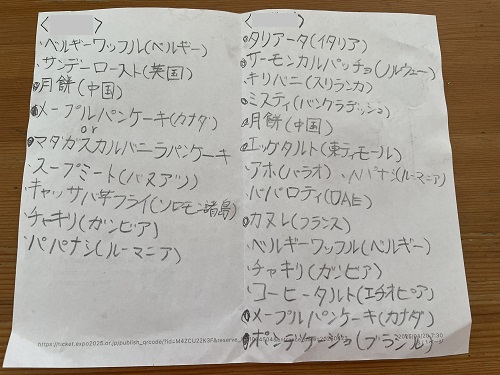 ベルギーワッフル(ベルギー)
サンデーロースト(英国)
月餅(中国)
メープルパンケーキ(カナダ)
or
マダガスカルバニラパンケーキ
スープミート(バヌアツ)
キャッサバ芋フライ(ソロモン諸島)
チャキリ(ガンビア)
パパナシ(ルーマニア)
タリアータ(イタリア)
サーモンカルパッチョ(ノルウェー)
キリバニ(スリランカ)
ミスティ(バングラデッシュ)
月餅(中国)
エッグタルト(東ティモール)
アホ(パラオ) パパナシ(ルーマニア)
パパロティ(UAE)
カヌレ(フランス)
ベルギーワッフル(ベルギー)
チャキリ(ガンビア)
コーヒータルト(エチオピア)
メープルパンケーキ(カナダ)
ポンデケージョ(ブラジル)